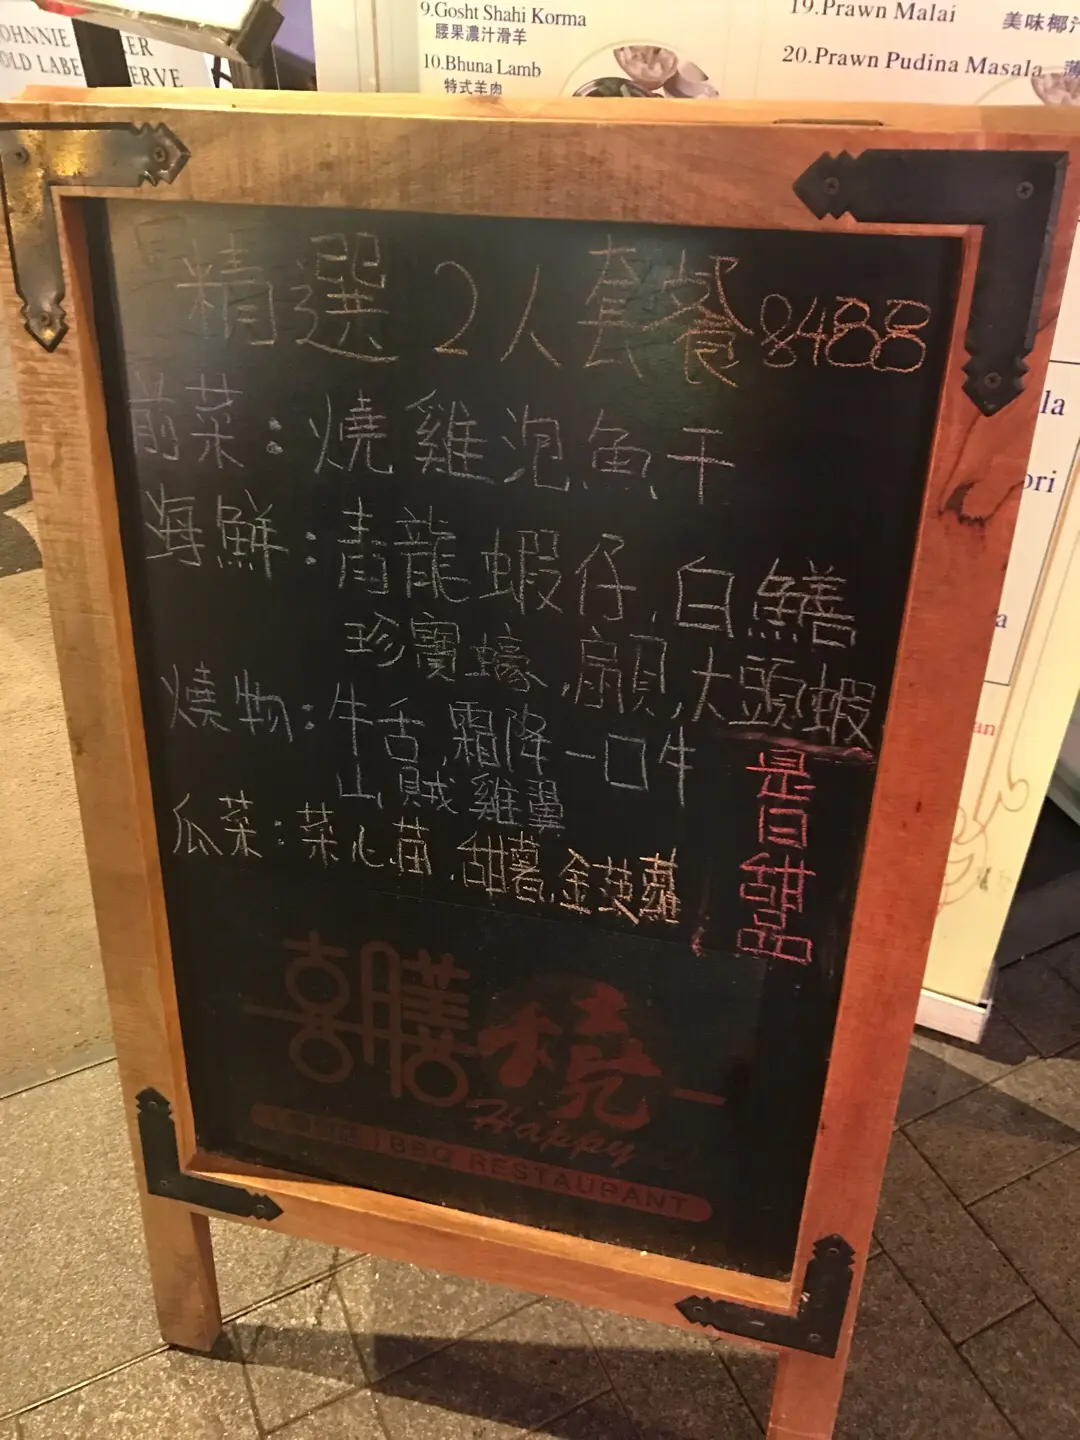 9.Gosht Shahi Korma
腰果濃汁滑羊
10.Bhuna Lamb
特式羊肉
19.Prawn Malai
美味椰汁
20.Prawn Pudina Masala
精選 2人套餐 $488
前菜：燒雞泡魚干
海鮮：青龍蝦仔，白鱔
珍寶蠔，扇貝，大頭蝦
燒物：牛舌，霜降一口牛
山賊雞翼
瓜菜：菜心苗，甜薯，金菠蘿
是日甜品
喜膳燒
Happy
BBQ RESTAURANT